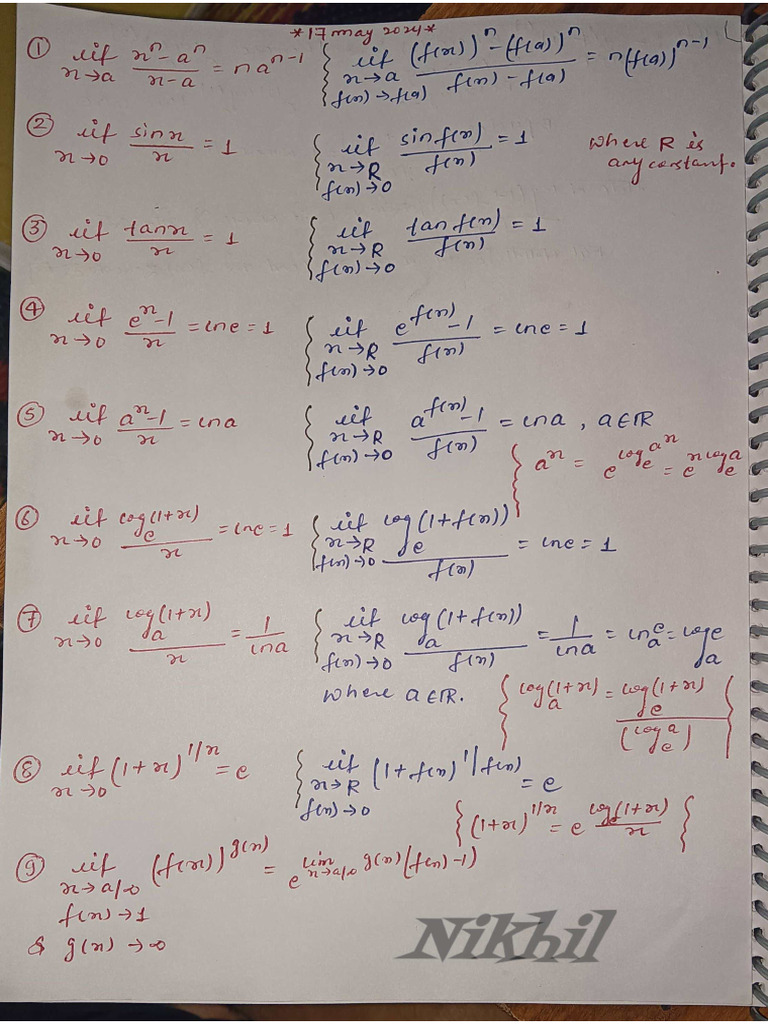 *17 may 2024*
① lif x→a (xⁿ-aⁿ)/(x-a) = naⁿ⁻¹ { lif x→a f(x)→f(a) ((f(x))ⁿ-(f(a))ⁿ)/(f(x)-f(a)) = n(f(a))ⁿ⁻¹
② lif x→0 sinx/x = 1 { lif x→R f(x)→0 sinf(x)/f(x) = 1 where R is
any constant.
③ lif x→0 tanx/x = 1 { lif x→R f(x)→0 tanf(x)/f(x) = 1
④ lif x→0 (eˣ-1)/x = lne = 1 { lif x→R f(x)→0 (e^f(x)-1)/f(x) = lne = 1
⑤ lif x→0 (aˣ-1)/x = lna { lif x→R f(x)→0 (a^f(x)-1)/f(x) = lna , a∈R
{ aˣ = e^(log_e aˣ) = e^(x log_e a)
⑥ lif x→0 log_e(1+x)/x = lne = 1 { lif x→R f(x)→0 log_e(1+f(x))/f(x) = lne = 1
⑦ lif x→0 log_a(1+x)/x = 1/lna { lif x→R f(x)→0 log_a(1+f(x))/f(x) = 1/lna = ln_a e = log_a e
where a∈R. { log_a(1+x) = log_e(1+x)/(log_e a) {
⑧ lif x→0 (1+x)^1/x = e { lif x→R f(x)→0 (1+f(x))^1/f(x) = e
{ (1+x)^1/x = e^(log_e(1+x)/x) {
⑨ lif x→a/∞ (f(x))^g(x) = e^(lim x→a/∞ g(x)(f(x)-1))
f(x)→1
& g(x)→∞
Nikhil